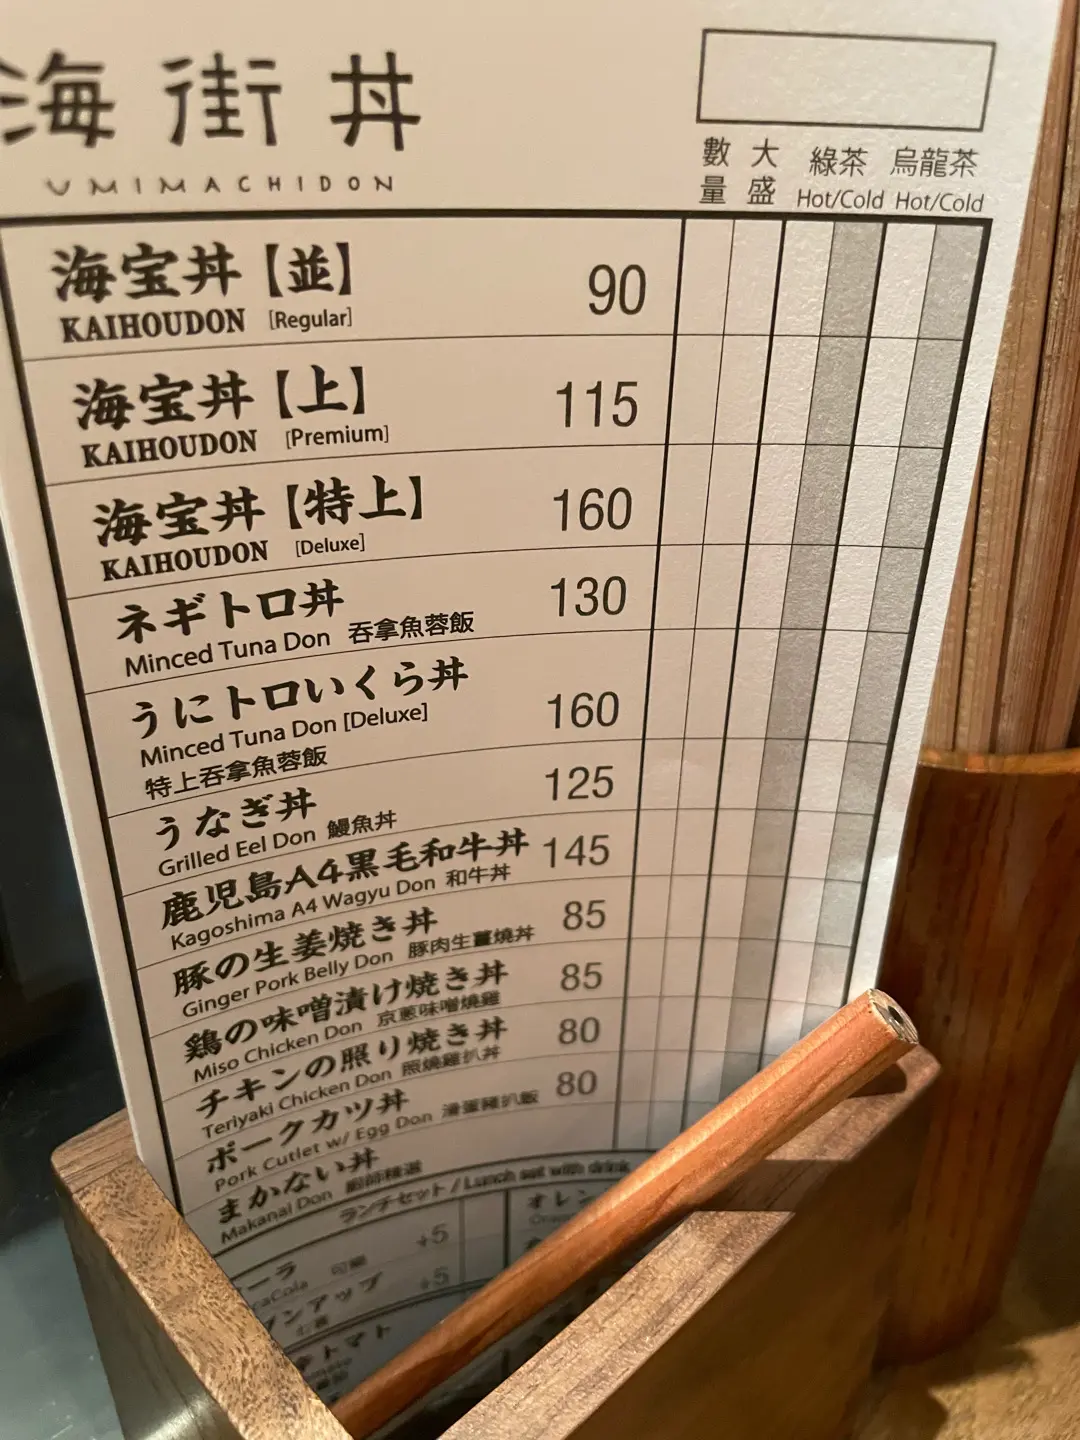 海街丼
UMIMACHIDON
數量 大盛 綠茶 烏龍茶
Hot/Cold Hot/Cold
海宝丼【並】 90
KAIHOUDON [Regular]
海宝丼【上】 115
KAIHOUDON [Premium]
海宝丼【特上】 160
KAIHOUDON [Deluxe]
ネギトロ丼 130
Minced Tuna Don 吞拿魚蓉飯
うにトロいくら丼 160
Minced Tuna Don [Deluxe]
特上吞拿魚蓉飯
うなぎ丼 125
Grilled Eel Don 鰻魚丼
鹿児島A4黒毛和牛丼 145
Kagoshima A4 Wagyu Don 和牛丼
豚の生姜焼き丼 85
Ginger Pork Belly Don 豚肉生薑燒丼
鶏の味噌漬け焼き丼 85
Miso Chicken Don 京蔥味噌燒雞
チキンの照り焼き丼 80
Teriyaki Chicken Don 照燒雞扒丼
ポークカツ丼 80
Pork Cutlet w/ Egg Don 滑蛋豬扒飯
まかない丼
Makanai Don 廚師精選
ランチセット / Lunch set with drink
ーラ +5 オレン
caCola 可樂
ンアップ +5
七喜
トマト